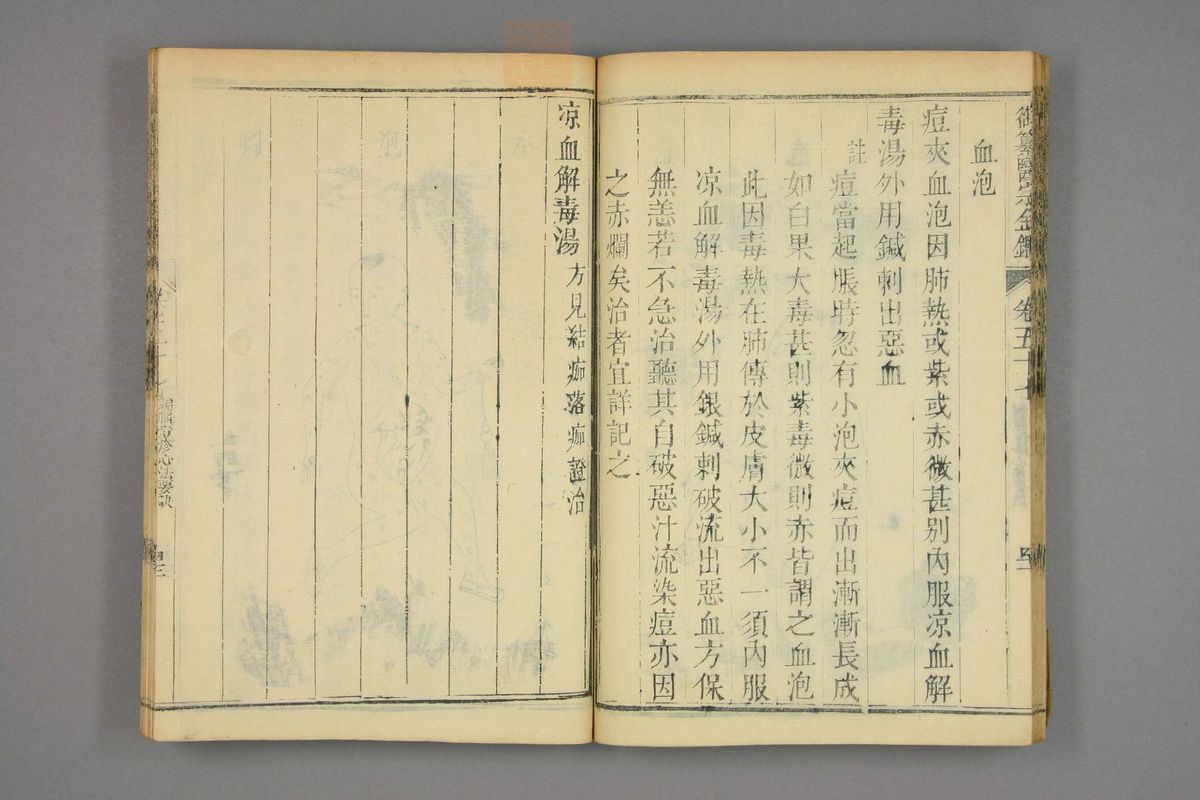 御纂醫宗金鑑 卷五十七
血泡
痘夾血泡因肺熱或紫或赤微甚別內服凉血解
毒湯外用鍼刺出惡血
註痘當起脹時忽有小泡夾痘而出漸漸長成
如白果大毒甚則紫毒微則赤皆謂之血泡
此因毒熱在肺傳於皮膚大小不一須內服
凉血解毒湯外用銀鍼刺破流出惡血方保
無恙若不急治聽其自破惡汁流染痘亦因
之赤爛矣治者宜詳記之
凉血解毒湯 方見結痂落痂證治
痘疹心法要訣